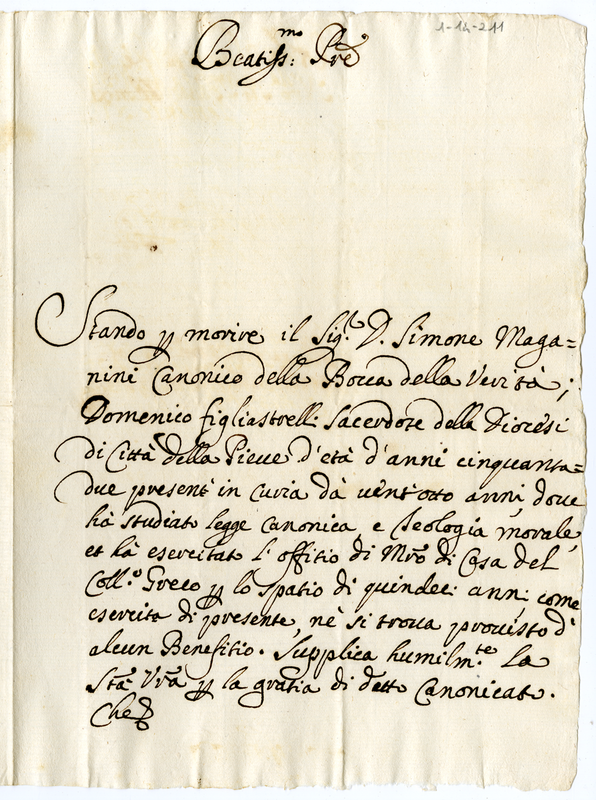 1-14-211
Beatiss:mo Pre
Stando p morire il Sig.r D. Simone Maga=
nini Canonico della Bocca della Verità;
Domenico figliastrelli Sacerdote della Diocesi
di Città della Pieve d'età d'anni cinquanta=
due present' in curia dà vent'otto anni, dove
hà studiato legge canonica, e Teologia morale,
et hà esercitato l'offitio di Mro di Casa del
Coll.o Greco p lo spatio di quindeci anni, come
esercita di presente, nè si trova provisto d'
alcun Benefitio. Supplica humilm.te La
Stà Vra p la gratia di detto Canonicato.
Che